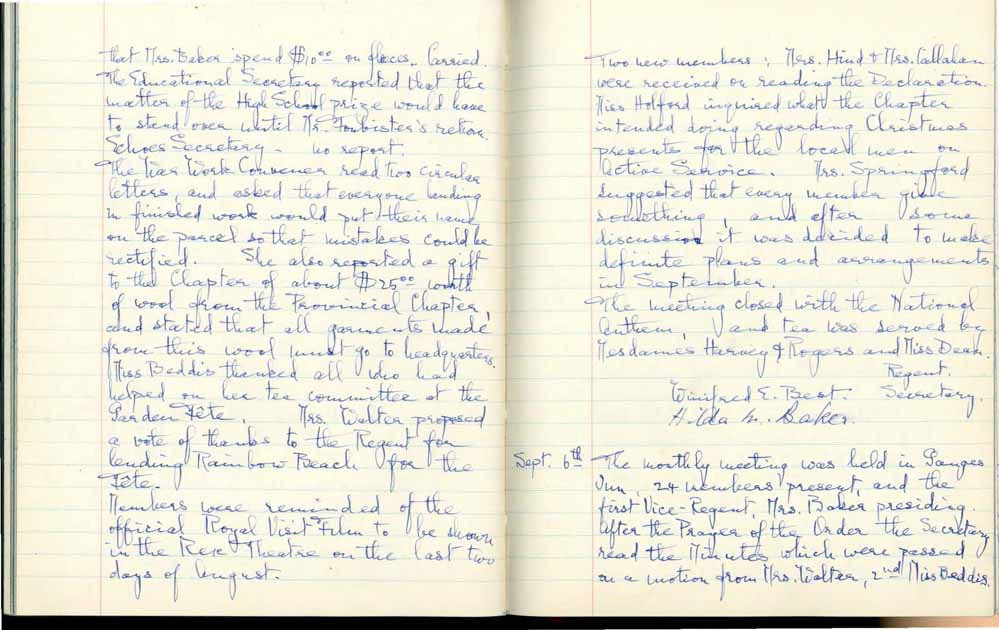 that Mrs. Baker spend $10.00 on places. Carried.
The Educational Secretary reported that the
matter of the High School prize would have
to stand over until Mr. Forbister's return.
Echoes Secretary - no report.
The War Work Convener read two circular
letters, and asked that everyone handing
in finished work would put their name
on the parcel so that mistakes could be
rectified. She also reported a gift
to the Chapter of about $25.00 worth
of wool from the Provincial Chapter,
and stated that all garments made
from this wool must go to headquarters.
Miss Beddis thanked all who had
helped on her tea committee at the
Garden Fête. Mrs. Walter proposed
a vote of thanks to the Regent for
lending Rainbow Beach for the
Fête.
Members were reminded of the
official Royal Visit Film to be shown
in the Rex Theatre on the last two
days of August.
Two new members; Mrs. Hind & Mrs. Callahan
were received on reading the Declaration.
Miss Holford inquired what the Chapter
intended doing regarding Christmas
presents for the local men on
Active Service. Mrs. Springford
suggested that every member give
something, and after some
discussion it was decided to make
definite plans and arrangements
in September.
The meeting closed with the National
Anthem, and tea was served by
Mesdames Harvey & Rogers and Miss Dean.
Regent.
Winifred E. Best. Secretary.
Hilda M. Baker.
Sept. 6th The monthly meeting was held in Ganges
Inn, 24 members present, and the
first Vice-Regent, Mrs. Baker presiding.
After the Prayer of the Order the Secretary
read the Minutes which were passed
on a motion from Mrs. Walter, 2nd Miss Beddis.